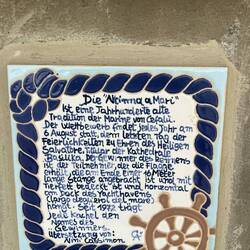 Die "Ntinna a Mari"
Ist eine Jahrhunderte alte
Tradition der Marine von Cefalù.
Der Wettbewerb findet jedes Jahr am
6 August statt dem letzten Tag der
Feierlichkeiten zu Ehren des Heiligen
Salvatore, Titular der Kathedrale
Basilika. Der Gewinner des Rennens
ist der Teilnehmer, der die Flagge
erhält, die am Ende einer 16 Meter
lange Stange angebracht ist und mit
tierfett bedeckt ist und horizontal
am Dock des Yachthavens
(largo degli eroi del mare)
hängt. Seit 1972 trägt
Jede Kachel den
Names des
Gewinners.
Übersetzung von: